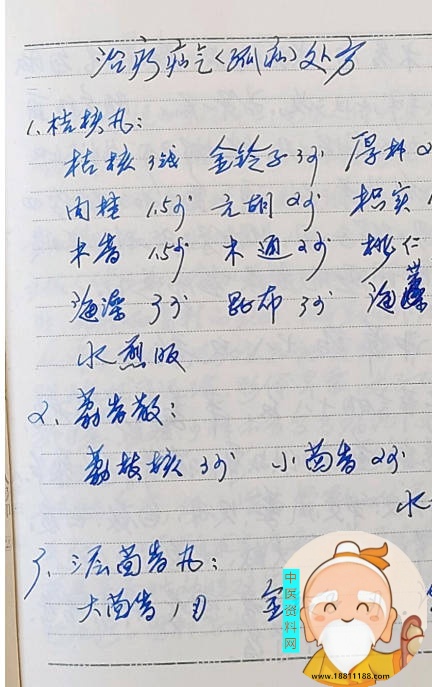 治疗疝气(狐疝)处方
1.桔核丸:
桔核 3钱 金铃子 3〃 厚朴 2
肉桂 1.5〃 元胡 2〃 枳实 1
木香 1.5〃 木通 2〃 桃仁
海藻 3〃 昆布 3〃 海藻
水煎服
2、荔香散:
荔枝核 3〃 小茴香 2〃
水
3、茴香丸:
大茴香 1两 金
中医资料网
www.18811188.com